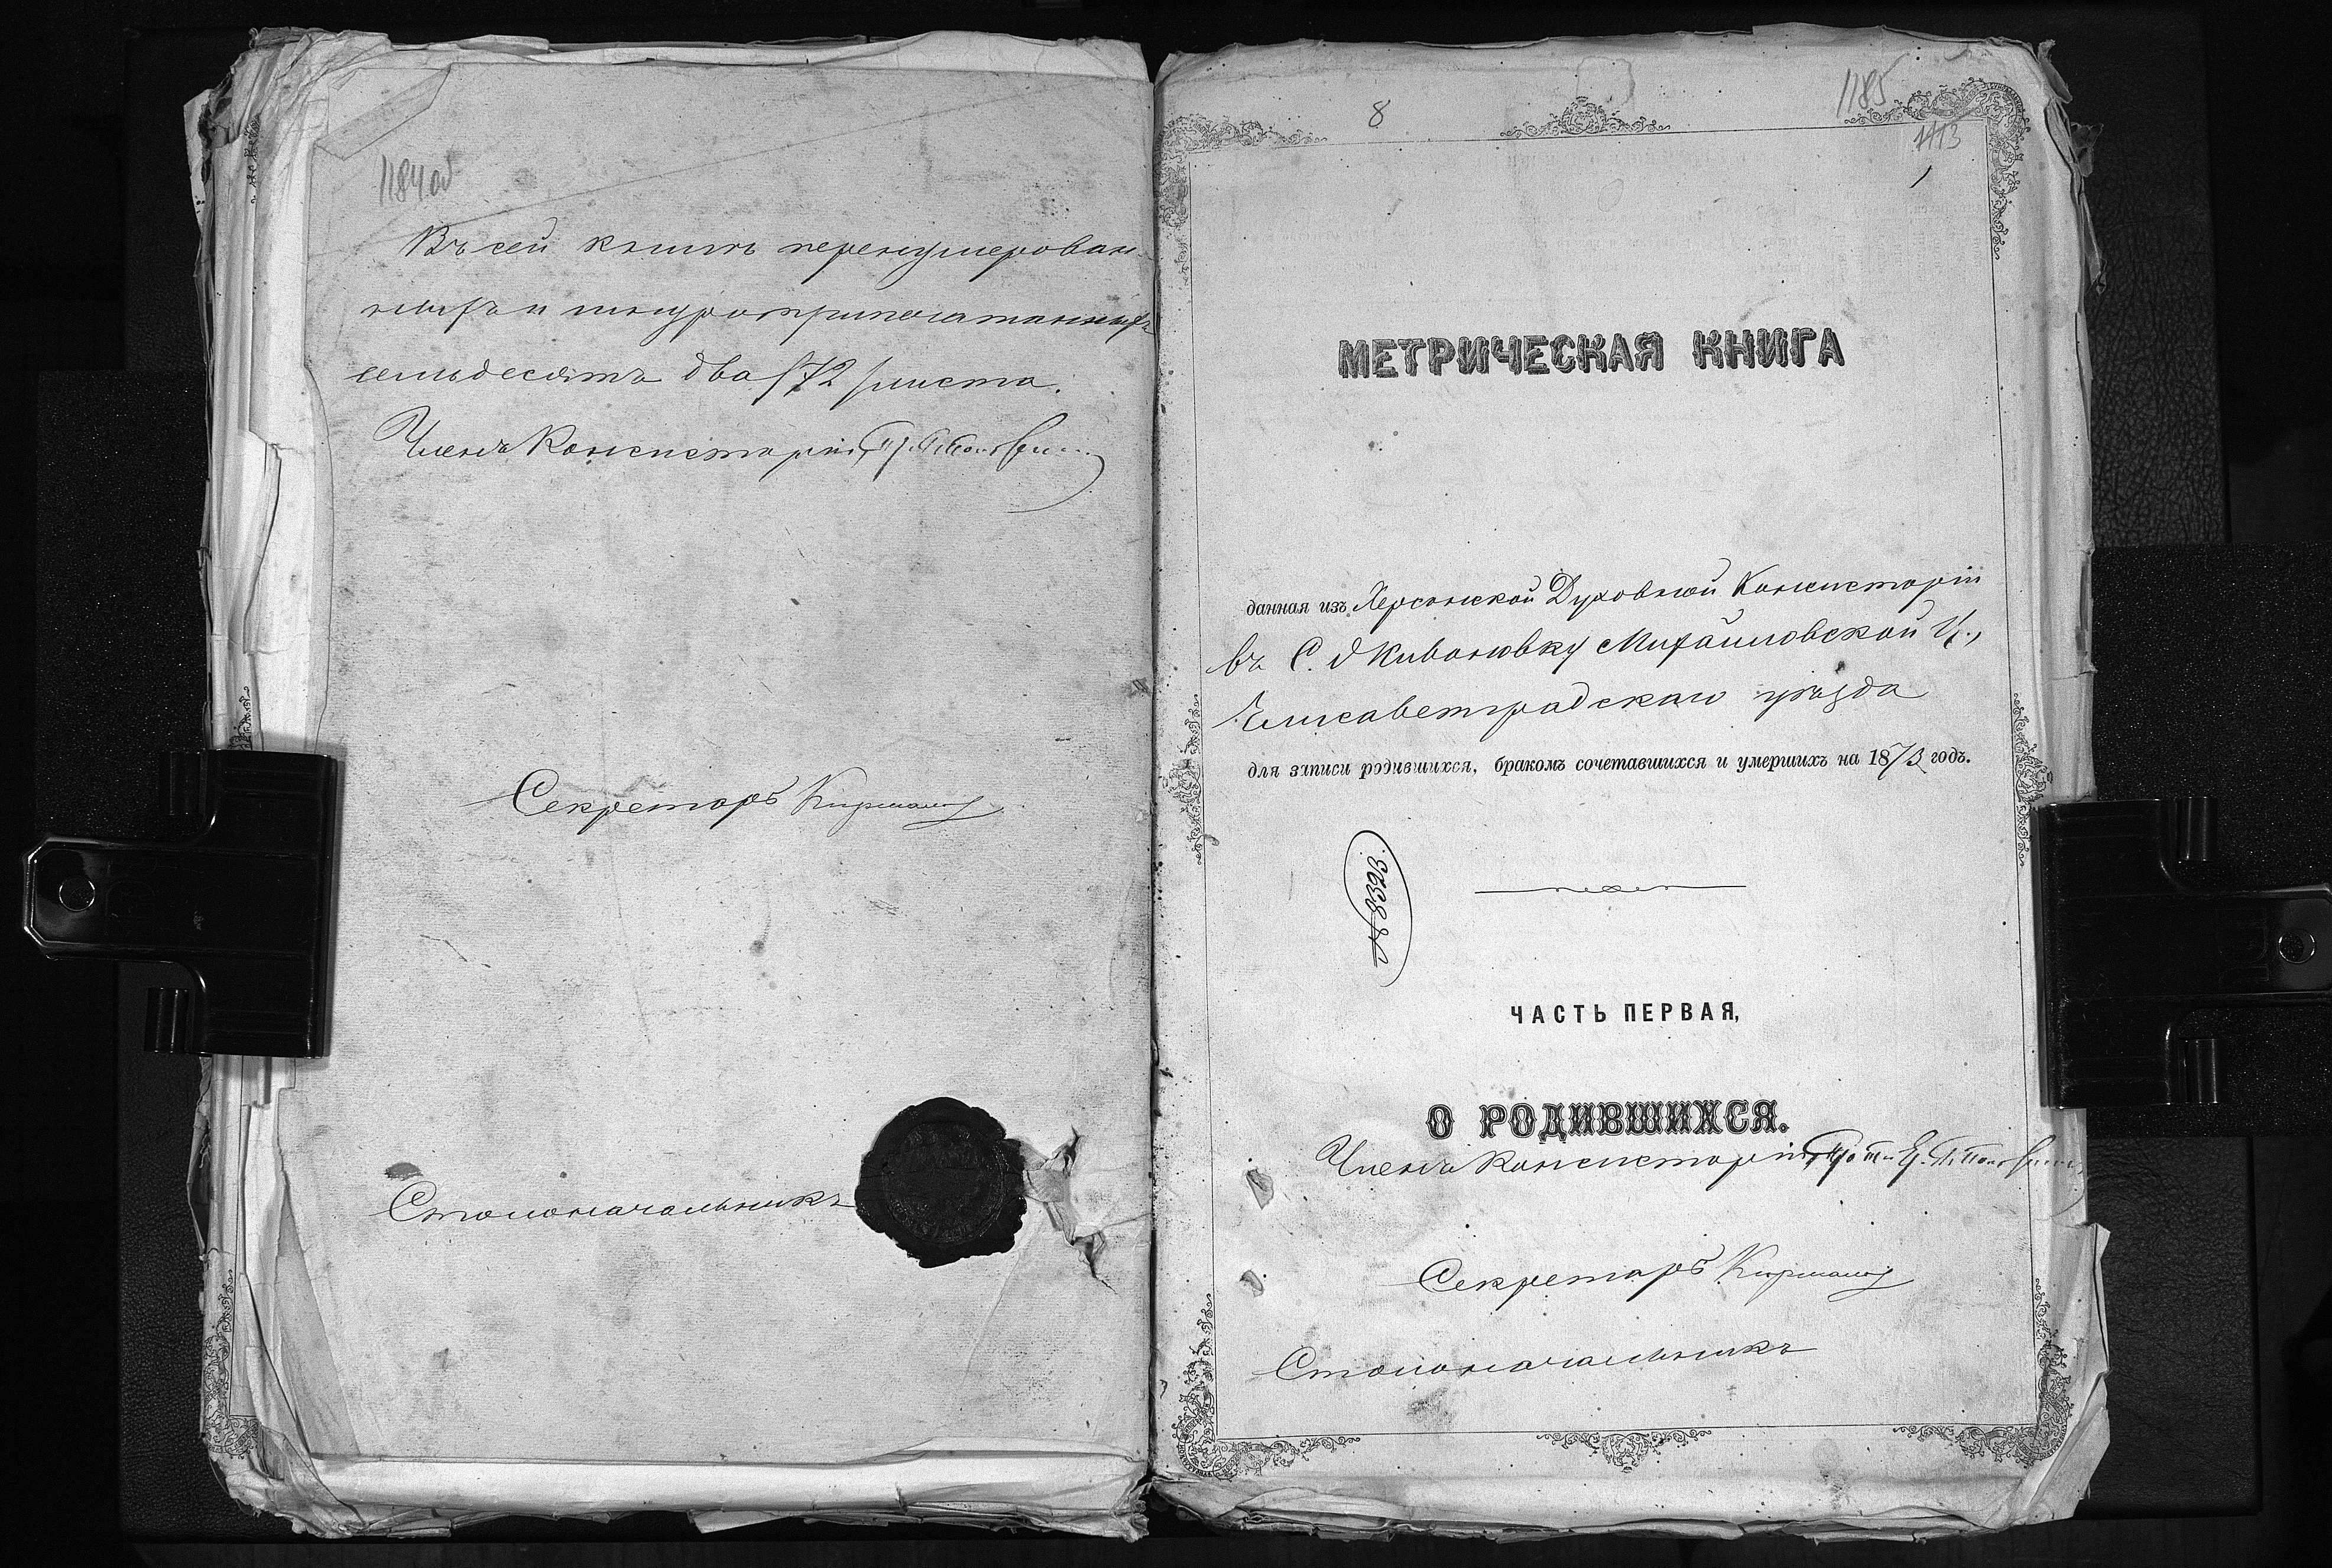 1184 об
Въ сей книгѣ перенумерован-
ныхъ и шнуроприпечатанныхъ
семьдесятъ два /72/ листа.
Членъ Консисторіи,
Секретарь
Столоначальникъ
8
1185
1113
1
МЕТРИЧЕСКАЯ КНИГА
данная изъ Херсонской Духовной Консисторіи
въ С. Михайловской Ц.,
Елисаветградскаго уѣзда
для записи родившихся, бракомъ сочетавшихся и умершихъ на 1873 годъ.
ЧАСТЬ ПЕРВАЯ,
О РОДИВШИХСЯ.
Членъ Консисторіи,
Секретарь
Столоначальникъ